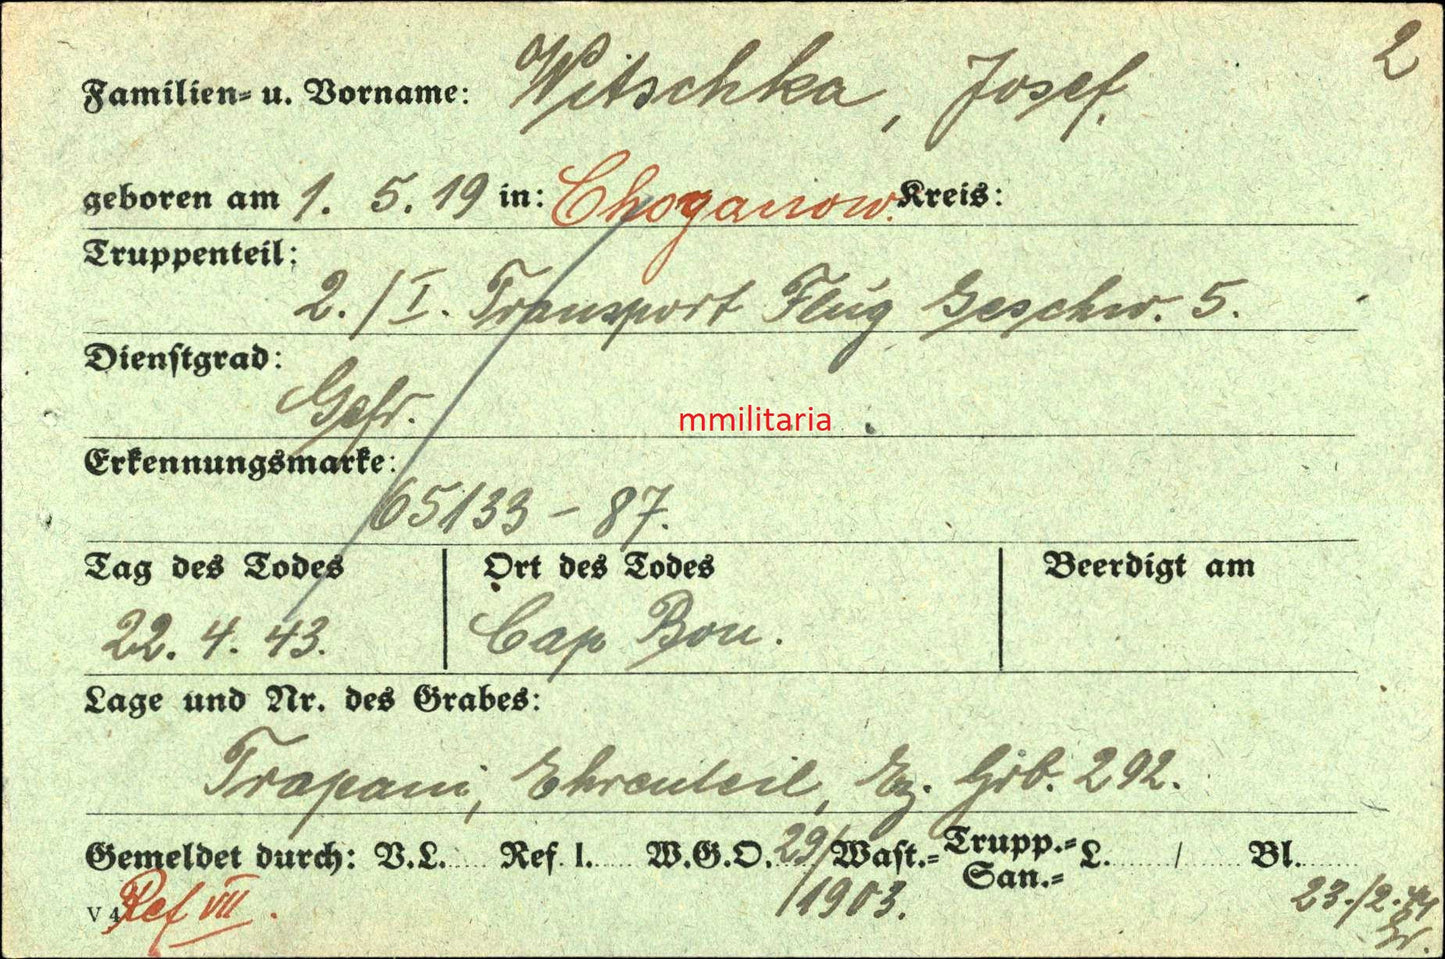 2
Familien- u. Vorname: Witschka, Josef.
geboren am 1. 5. 19 in: Choganow. Kreis:
Truppenteil:
2./I. Transport Flug Geschw. 5.
Dienstgrad:
Gefr.
mmilitaria
Erkennungsmarke:
65133 - 87.
Tag des Todes Ort des Todes Beerdigt am
22. 4. 43. Cap Bon.
Lage und Nr. des Grabes:
Trapani, Ehrenteil, Ez. Grb. 292.
Gemeldet durch: V.L. Ref. 1. W.G.O. 29/ Wast.- Trupp.- L. / Bl.
San.-
V 4 Ref VII. /1903. 23./2. 44